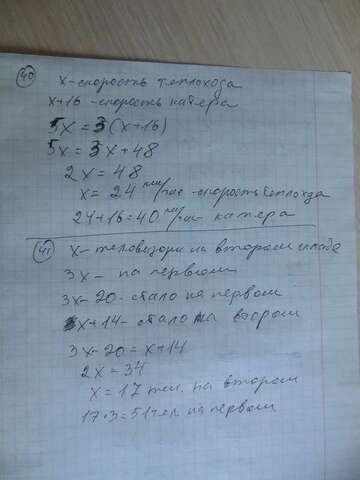 40
x - скорость теплохода
x+16 - скорость катера
5x = 3(x+16)
5x = 3x+48
2x = 48
x = 24 км/час - скорость теплохда
24+16=40 км/час - катера
41
x - телевизоры на втором складе
3x - на первом
3x-20 - стало на первом
x+14 - стало на втором
3x-20 = x+14
2x = 34
x = 17 тел. на втором
17·3=51 тел на первом